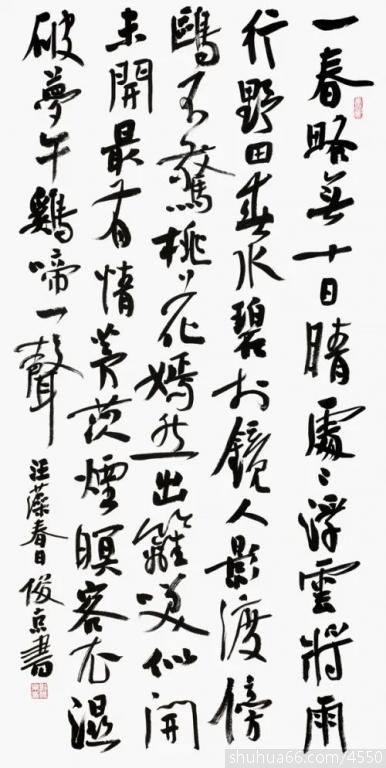 一春略無十日晴處〻浮雲將雨
行野田春水碧於鏡人影渡傍
鷗不驚桃花嫣然出籬笑似開
未開最有情茅茨煙暝客衣濕
破夢午鷄啼一聲
汪藻春日 俊京書
shuhua66.com/4550